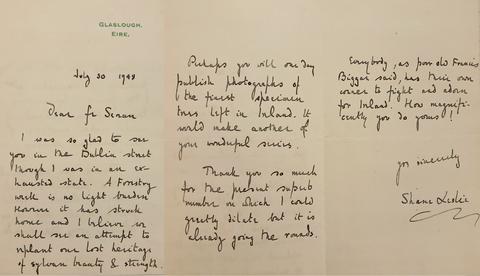 GLASLOUGH,
EIRE.
July 30 1948
Dear Fr Senan
I was so glad to see
you in the Dublin street
though I was in an ex-
hausted state. A Forestry
week is no light burden
However it has struck
home and I believe we
shall see an attempt to
replant our lost heritage
of sylvan beauty & strength.
Perhaps you will one day
publish photographs of
the finest specimen
trees left in Ireland. It
would make another of
your wonderful series.
Thank you so much
for the present superb
number on which I could
greatly dilate but it is
already going the rounds.
Everybody, as poor old Francis
Biggar said, has their own
corner to fight and adorn
for Ireland. How magnifi-
cently you do yours!
yrs sincerely
Shane Leslie